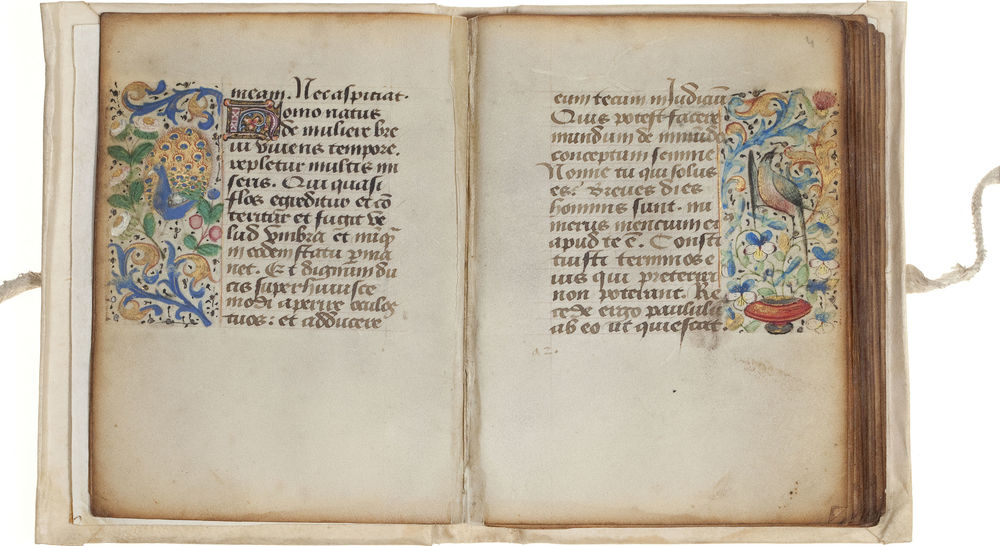 meam. Nec aspiciat.
Homo natus
de muliere bre
ui viuens tempore.
repletur multis mi
seriis. Qui quasi
flos egreditur et cō
teritur et fugit ve
lud vmbra et nūq̄
in eodem statu p̄ma
net. Et dignum du
cis super huiusce
modi aperire oculos
tuos: et adducere
4
eum tecum in iudiciū
Quis potest facere
mundum de inmūdo
conceptum semine
Nonne tu qui solus
es: Breues dies
hominis sunt. nu
merus mencium ei
apud te ē. Consti
tuisti terminos e
uis qui preteriri
non poterant. Re
cede ergo paululū
ab eo ut quiescat.
a2.